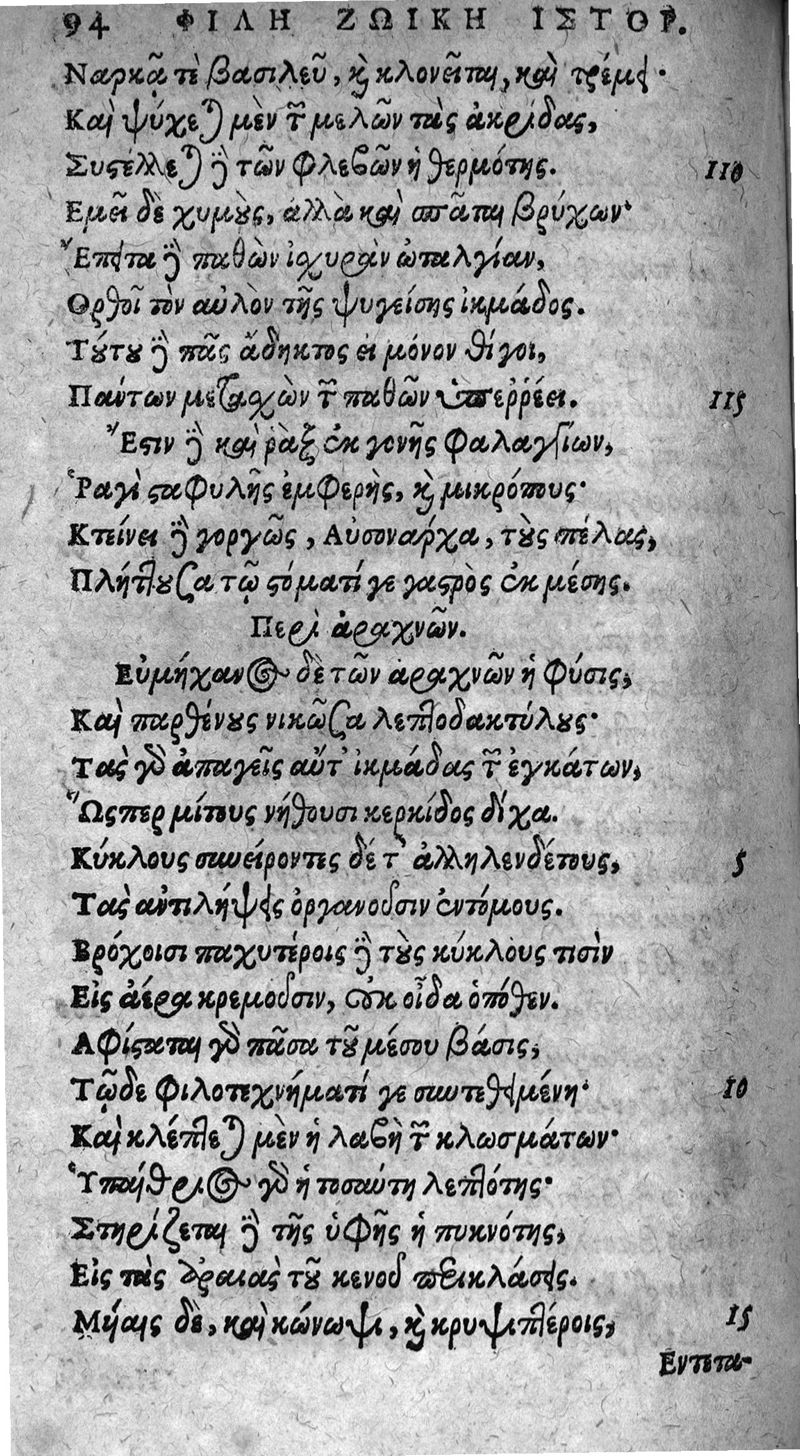 94 ΦΙΛΗ ΖΩΙΚΗ ΙΣΤΟΡ.
Ναρκᾷ τὲ βασιλεῦ, καὶ κλονεῖται, καὶ τρέμει·
Καὶ ψύχεται μὲν τῶν μελῶν τὰς ἀκρίδας,
Συστέλλεται δὲ τῶν φλεβῶν ἡ θερμότης. 110
Εμεῖ δὲ χυμοὺς, ἀλλὰ καὶ σπᾶται βρύχων·
Ἔπειτα δὲ παθὼν ἰσχυρὰν ὠταλγίαν,
Ορθοῖ τὸν αὐλὸν τῆς ψυγείσης ἰκμάδος.
Τούτου δὲ πᾶς ἄδηκτος εἰ μόνον θίγοι,
Πάντων μετασχὼν τῶν παθῶν ὑπεῤῥέει. 115
Ἔστιν δὲ καὶ ῥὰξ ἐκ γονῆς φαλαγγίων,
Ῥαγὶ σταφυλῆς ἐμφερὴς, καὶ μικρόπους·
Κτείνει δὲ γοργῶς, Αὐσονάρχα, τοὺς πέλας,
Πλήττουσα τῷ στόματί γε γαστρὸς ἐκ μέσης.
Περὶ ἀραχνῶν.
Εὐμήχανος δὲ τῶν ἀραχνῶν ἡ φύσις,
Καὶ παρθένους νικῶσα λεπτοδακτύλους·
Τὰς γὰρ ἀπαγεῖς αὗτ' ἰκμάδας τῶν ἐγκάτων,
Ὥσπερ μίτους νήθουσι κερκίδος δίχα.
Κύκλους συνείροντες δέ τ' ἀλληλενδέτους, 5
Τὰς ἀντιλήψεις ὀργανοῦσιν ἐντόμους.
Βρόχοισι παχυτέροις δὲ τοὺς κύκλους τισὶν
Εἰς ἀέρα κρεμοῦσιν, οὐκ οἶδα ὁπόθεν.
Αφίσταται γὰρ πᾶσα τοῦ μέσου βάσις,
Τῷδε φιλοτεχνήματί γε συντεθειμένη· 10
Καὶ κλέπτεται μὲν ἡ λαβὴ τῶν κλωσμάτων·
Ὑπαίθριος γὰρ ἡ τοσαύτη λεπτότης·
Στηρίζεται δὲ τῆς ὑφῆς ἡ πυκνότης,
Εἰς τὰς ἀραιὰς τοῦ κενοῦ περικλάσεις.
Μυίαις δὲ, καὶ κώνωψι, καὶ κρυψιπτέροις, 15
Εντετα-